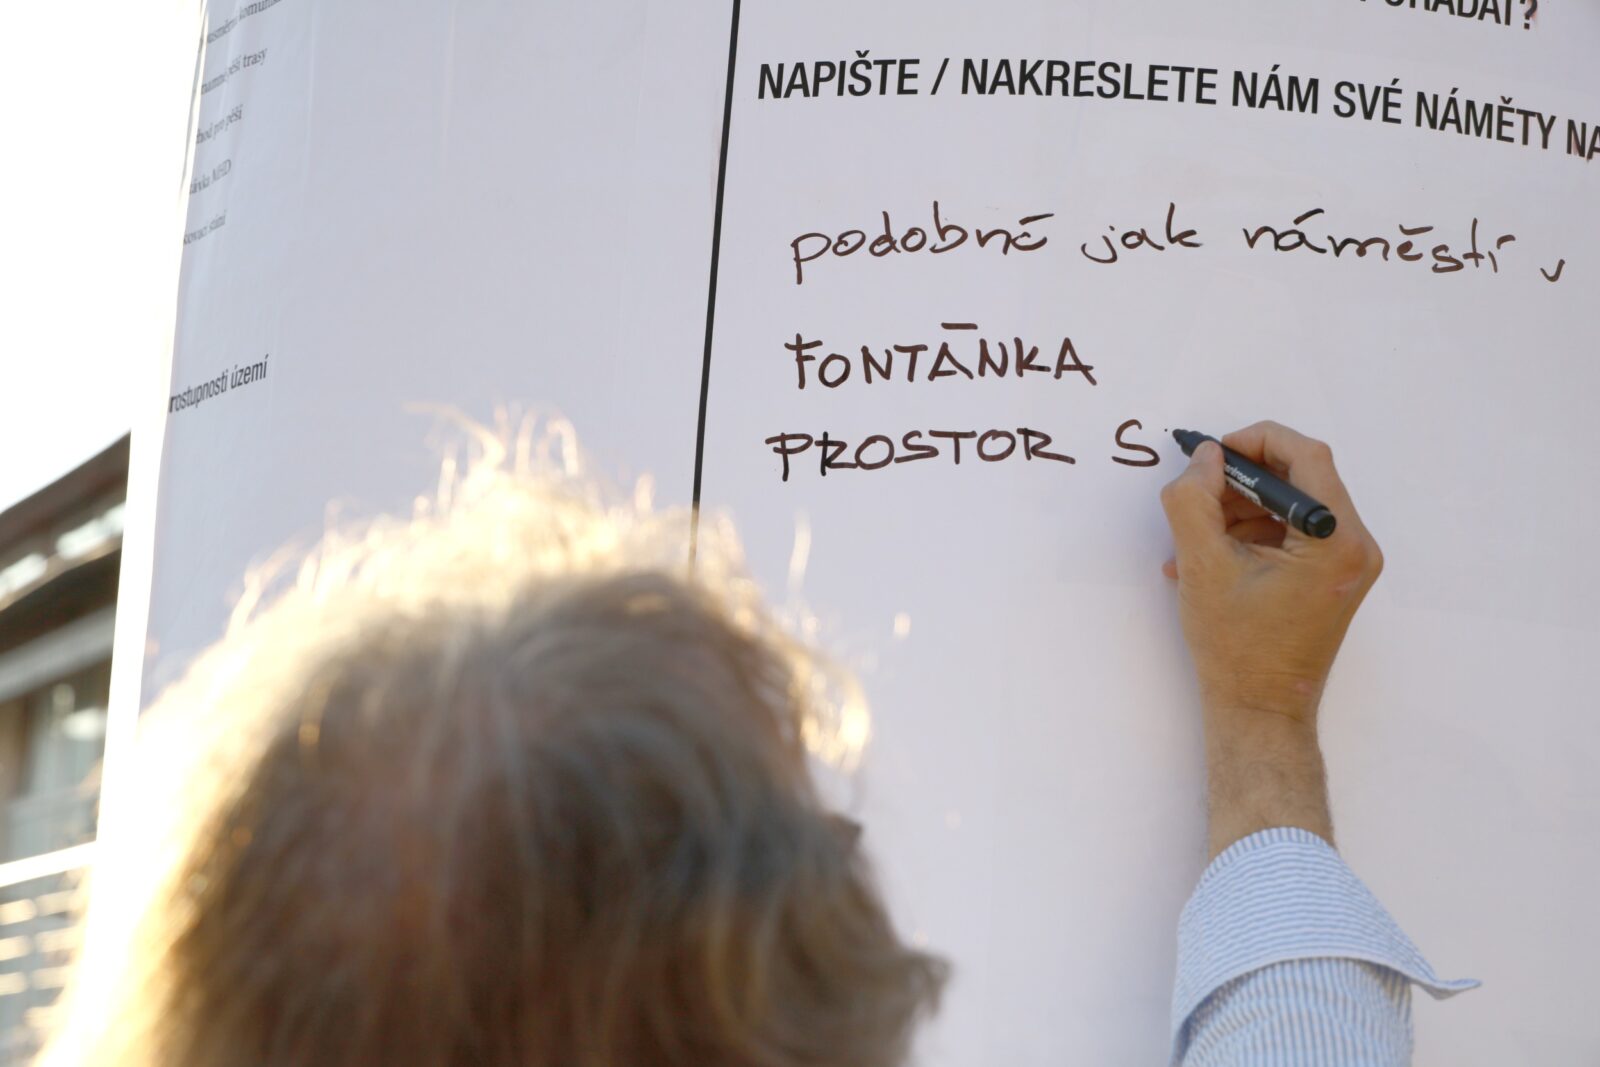 pěší trasy
pro pěší
MHD
stání
rostupnosti území
POŘÁDAT?
NAPIŠTE / NAKRESLETE NÁM SVÉ NÁMĚTY NA
podobně jak náměstí v
FONTÁNKA
PROSTOR S
centropen